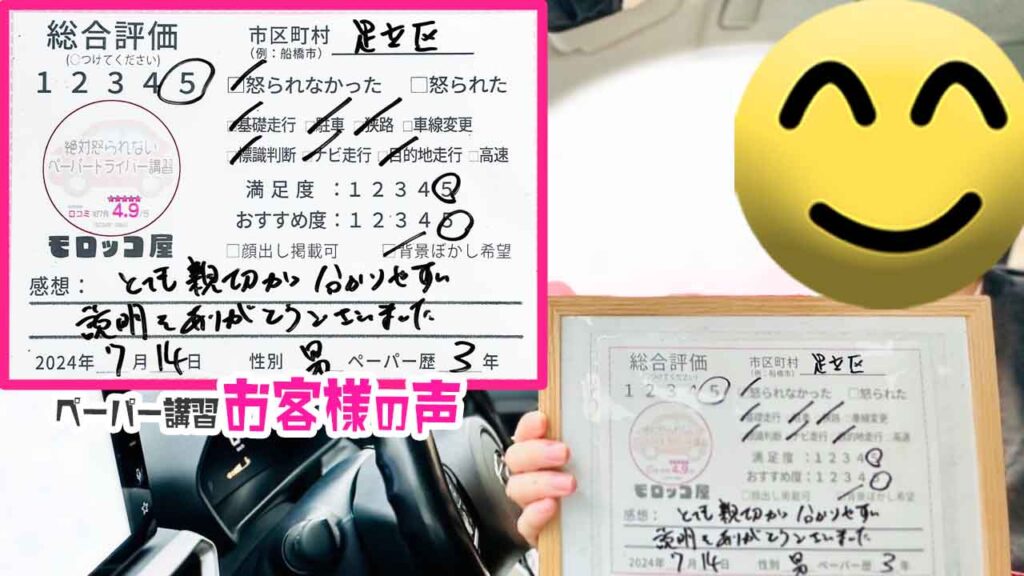 総合評価
(○つけてください)
1 2 3 4 5
市区町村
(例：船橋市)
足立区
□怒られなかった □怒られた
□基礎走行 □駐車 □狭路 □車線変更
□標識判断 □ナビ走行 □目的地走行 □高速
満足度：1 2 3 4 5
おすすめ度：1 2 3 4 5
□顔出し掲載可 □背景ぼかし希望
絶対怒られない
ペーパードライバー講習
★★★★★
口コミ
4.9/5
モロッコ屋
感想：とても親切かつ分かりやすい
説明をありがとうございました
2024年 7月14日 性別 男 ペーパー歴 3年
ペーパー講習お客様の声
総合評価
1 2 3 4 5
市区町村
(例：船橋市)
足立区
□怒られなかった □怒られた
□基礎走行 □駐車 □狭路 □車線変更
□標識判断 □ナビ走行 □目的地走行 □高速
満足度：1 2 3 4 5
おすすめ度：1 2 3 4 5
□顔出し掲載可 □背景ぼかし希望
4.9
モロッコ屋
感想：とても親切かつ分かりやすい
説明をありがとうございました
2024年 7月14日 性別 男 ペーパー歴 3年